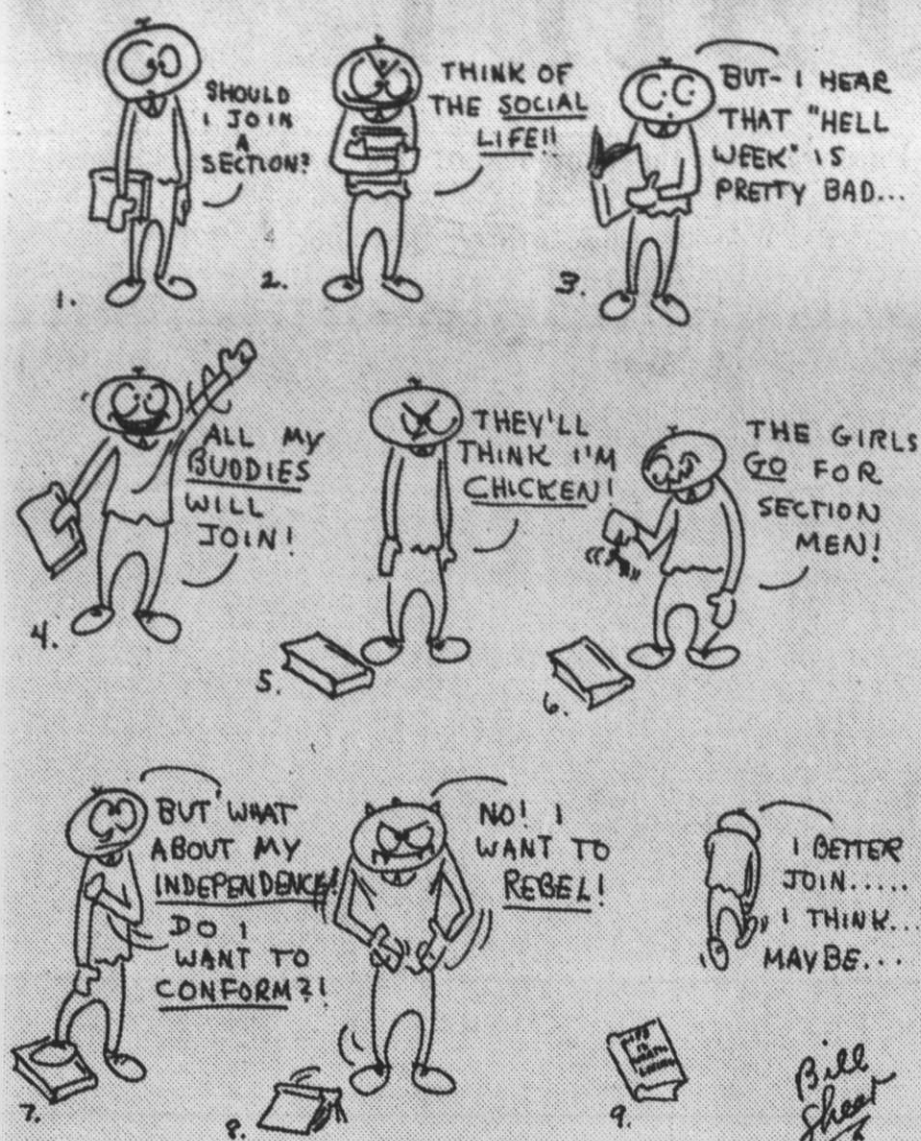 SHOULD
I JOIN
A
SECTION?
1.
THINK OF
THE SOCIAL
LIFE!!
2.
BUT- I HEAR
THAT "HELL
WEEK" IS
PRETTY BAD...
3.
ALL MY
BUDDIES
WILL
JOIN!
4.
THEY'LL
THINK I'M
CHICKEN!
5.
THE GIRLS
GO FOR
SECTION
MEN!
6.
BUT WHAT
ABOUT MY
INDEPENDENCE!
DO I
WANT TO
CONFORM?!
7.
NO! I
WANT TO
REBEL!
8.
I BETTER
JOIN.....
I THINK...
MAYBE...
9.
Bill